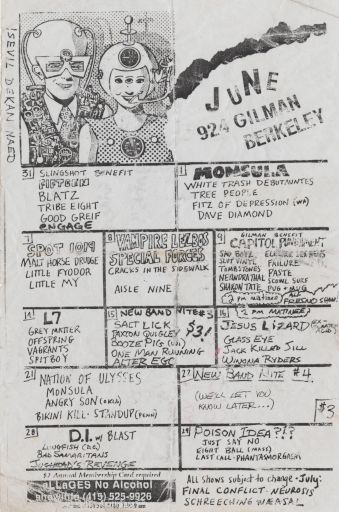 JUNE
924 GILMAN
BERKELEY
31 SLINGSHOT BENEFIT
FIFTEEN
BLATZ
TRIBE EIGHT
GOOD GREIF
ENGAGE
1 MONSULA
WHITE TRASH DEBUTAUNTES
TREE PEOPLE
FITZ OF DEPRESSION (WA)
DAVE DIAMOND
7
SPOT 1019
MALT HORSE DRUDGE
LITTLE FYODOR
LITTLE MY
8 VAMPIRE LEZBOS
SPECIAL FORCES
CRACKS IN THE SIDEWALK
AISLE NINE
9 GILMAN BENEFIT
CAPITOL PUNISHMENT
SAD BOYZ
FAILURE
TOMBSTONES
PASTE
NEANDRATHAL
SHAKIN TATE
(2 PM MATINEE)
ALL FRESNO SHOW!
14 L7
GREY MATTER
OFFSPRING
VAGRANTS
SPITBOY
15 NEW BAND NITE #3
SALT LICK
JAXON QUIGLEY
BOOZE PIG
ONE MAN RUNNING
ALTER EGO
$3!
16 (2 PM MATINEE)
JESUS LIZARD
GLASS EYE
JACK KILLED JILL
WINONA RYDERS
21 NATION OF ULYSSES
MONSULA
ANGRY SON
BIKINI KILL · STANDUP (PENN)
22 NEW BAND NITE #4
(WE'LL LET YOU
KNOW LATER...)
$3
28 D.I. W/ BLAST
LUNGFISH (DC)
BAD SAMARITANS
JUGHEAD'S REVENGE
29 POISON IDEA?!?
JUST SAY NO
EIGHT BALL (MASS)
LAST CALL · PHANTASMORGASM
$2 Annual Membership Card required
aLLaGES No Alcohol
showinfo (415) 525-9926
All Shows subject to change · July:
FINAL CONFLICT · NEUROSIS
SCHREECHING WEASAL!